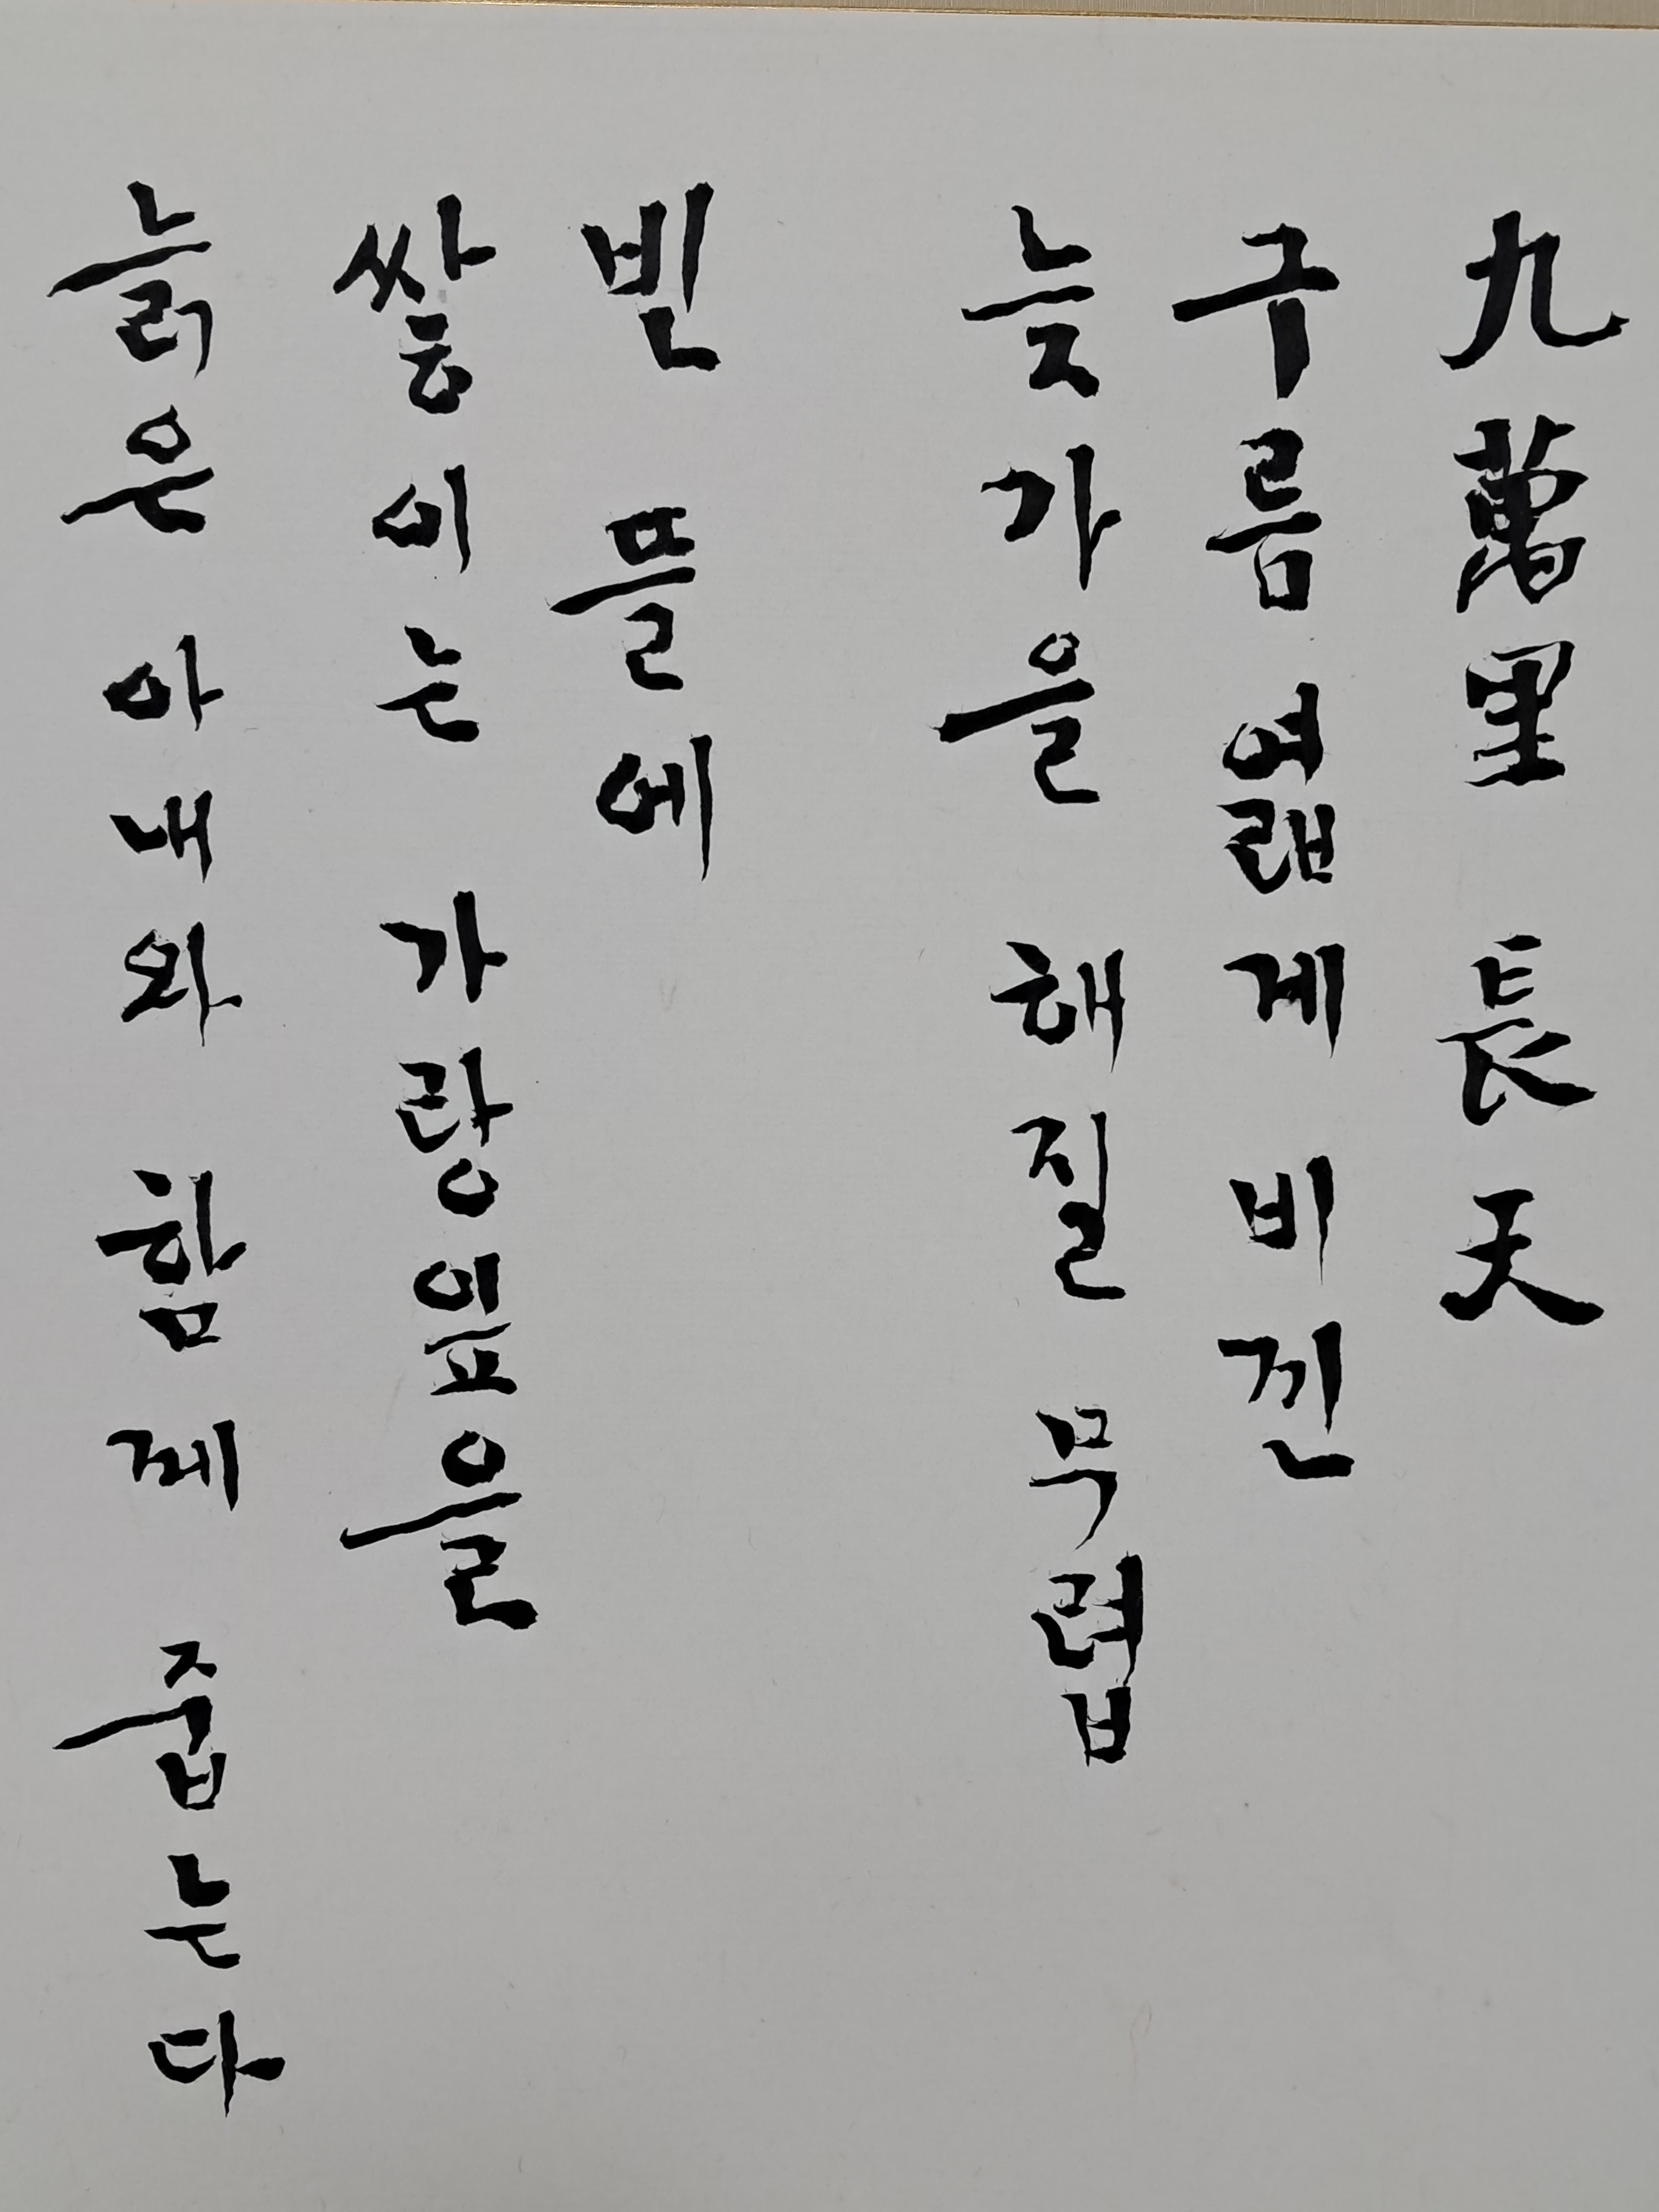 九萬里 長天
구름 엷게 비낀
늦가을 해질 무렵
빈 뜰에
쌓이는 가랑잎을
늙은 아내와 함께 줍는다